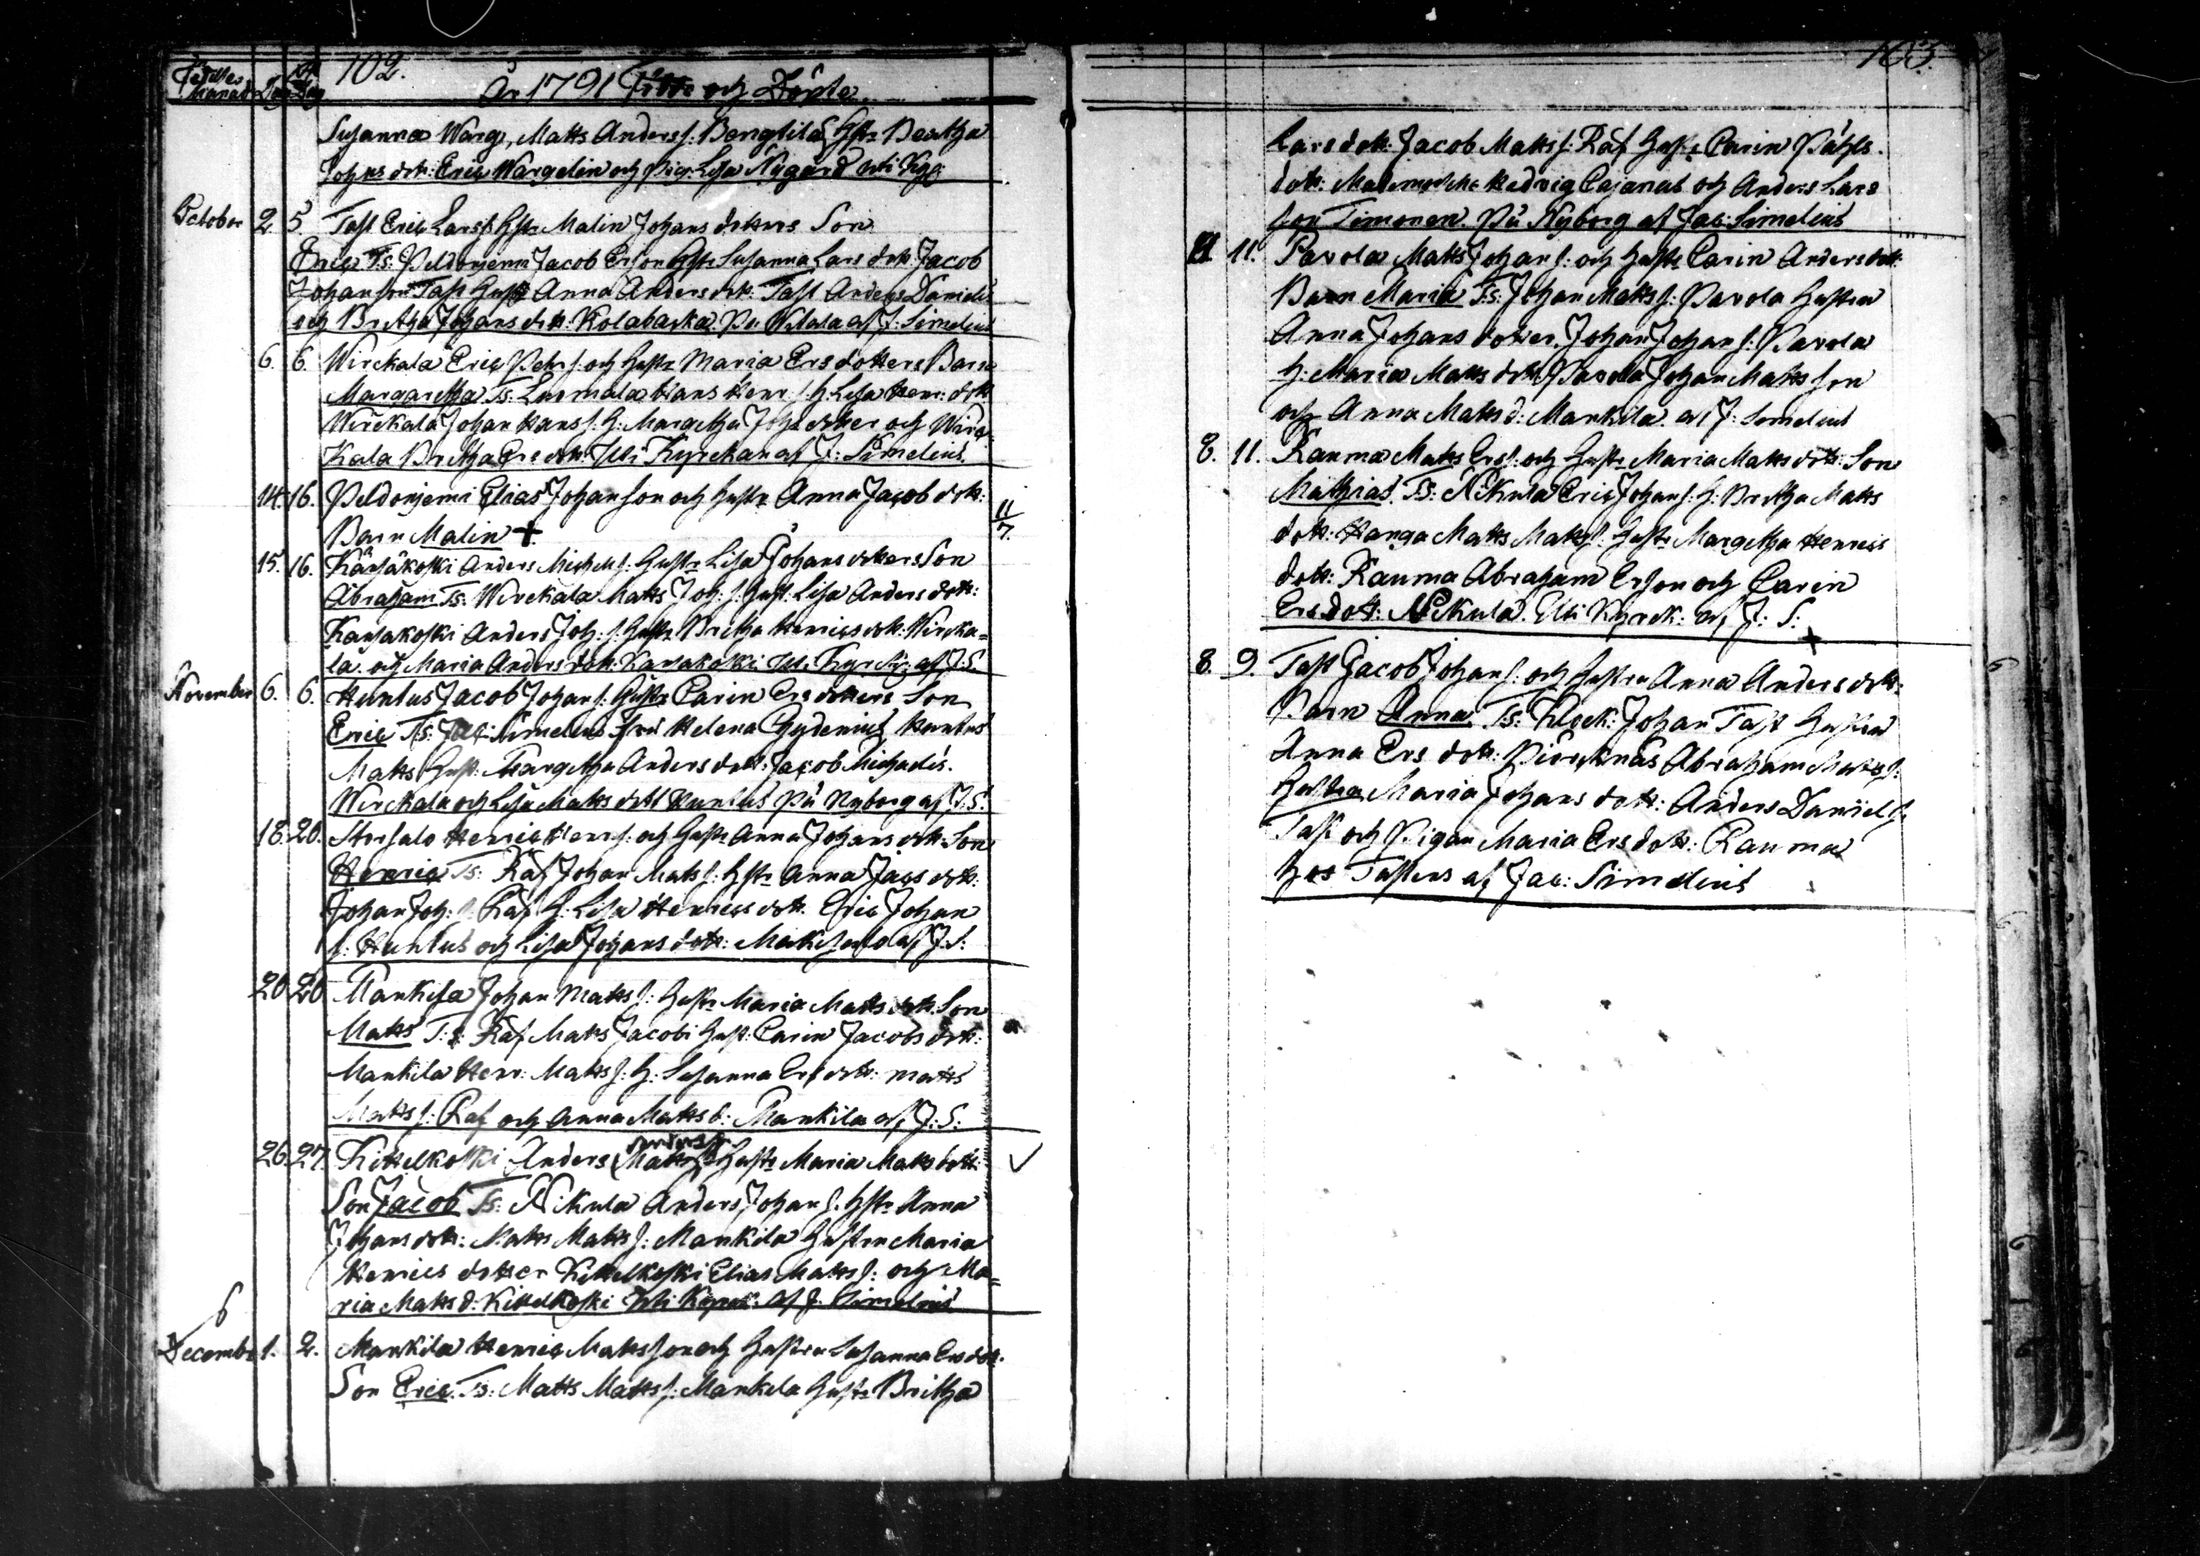 Födelse Döp. 102.
månad Dag Dag År 1791 Födde och Döpte
Susanna Warg, Matts Anders s. Bengtila Hstr Beatha
Johans dott: Eric Wargelin och Pig. Lisa Nygård uti Kyr
October 2 5 Tast Eric Lars s. Hstr Malin Johans dotters Son
Eric Ts: Peldoniemi Jacob Erson Hstr Susanna Lars dott. Jacob
Johanson Tast Hust Anna Anders dott. Tast Anders Daniels
och Britha Johans dott: Kolabacka På af J: Simelius
6. 6. Wirckala Eric Pehr s. och Hustr Maria Ers dotters Barn
Margaretha Ts: Luomala Hans Henr. s. H. Lisa Henr: dott
Wirckala Johan Hans s. H: Margetha Joh: dotter och Wirc-
kala Britha Ers dott. Uti Kyrckan af J: Simelius
14. 16. Peldoniemi Elias Johanson och Hustr Anna Jacob dott: 11/7.
Barn Malin +
15. 16. Käräkoski Anders Michels s. Hustr Lisa Johans dotters Son
Abraham Ts: Wirckala Matts Joh: s. Hust: Lisa Anders dott:
Karakoski Anders Joh: s. Hustr Britha Henrics dott. Wircka=
la och Maria Anders dott: Karakoski Uti Kyrck: af J: S.
November 6. 6. Huntus Jacob Johan s. Hustr Carin Ers dotters Son
Eric Ts: Jac: Simelius Fru Helena Chydenius Huntus
Matts Hust: Margetha Anders dott: Jacob Michaels s.
Wirckala och Lisa Matts dott Huntus På Nyborg af J. S.
18. 20. Storsalo Henric Henr s. och Hustr Anna Johans dott. Son
Henric Ts: Räf Johan Mats s. Hstr Anna Jacs dott:
Johan Joh: s. Räf H: Lisa Henrics dott. Eric Johan
s: Huntus och Lisa Johans dott: af J. S:
20 20 Mankila Johan Matts s: Hustr Maria Matts dott. Son
Matts T: s: Räf Matts Jacobs Hust. Carin Jacobs dott:
Mankila Henr: Matts s. H: Susanna Ers dott: Matts
Matts s: Räf och Anna Matts d: Mankila af J: S:
26. 27. Kittelkoski Anders (Matts) Hustr Maria Matts dott: ✓
Son Jacob Ts: Nikula Anders Johan s. Hstr Anna
Johans dott: Matts Matts s: Mankila Hustru Maria
Henrics dotter Kittelkoski Elias Matts s: och Ma=
ria Matts d: Kittelkoski Uti Kyrck: af J. Simelius
6
December 1. 2. Mankila Henric Mattsson och Hustru Susanna Ers dott.
Son Eric. Ts: Matts Matts s: Mankila Hustr Britha
103
Lars dott. Jacob Matts s: Räf Hust: Carin Påhls.
dott: Mademoiselle Hedvig Cajanus och Anders Lars
son Timonen. På Nyborg af Jac: Simelius
11. Pavola Matts Johan s: och Hustr Carin Anders dott:
Barn Maria T:s: Johan Matts s: Pavola Hustru
Anna Johans dotter. Johan Johan s: Pavola
H: Maria Matts dott. Pavola Johan Matts son
och Anna Matts d: Mankila af J: Simelius
8. 11. Rauma Matts Ers s: och Hustr Maria Matts dott: Son
Mathias. Ts: Nikula Eric Johan s: H: Britha Matts
dott: Hanga Matts Matts s. Hustr Margetha Henrics
dott: Rauma Abraham Erson och Carin
Ers dott: Nikula. Uti Kyrck: af J: S:
+
8. 9. Tast Jacob Johan s: och Hustru Anna Anders dott:
Barn Anna Ts: Klock: Johan Tast Hustru
Anna Ers dott: Piricknäs Abraham Matts s:
Hustru Maria Johans dott: Anders Daniel s.
Tast och Pigan Maria Ers dott: Rauma
hos Tastens af Jac: Simelius